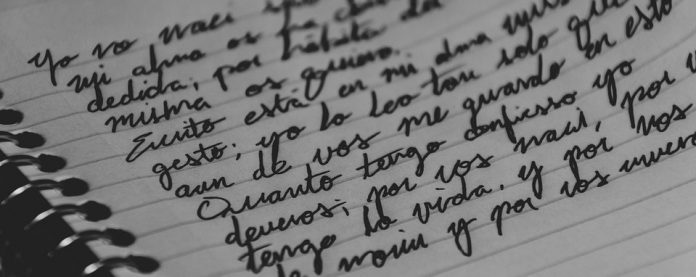 yo no naci
mi alma os ha
dedida; por hábito del
misma os quiero.
Escrito está en mi alma
gesto; yo lo leo tan solo que
aun de vos me guardo en esto
Quanto tengo confiesso yo
deveros; por vos naci, por
tengo la vida, y por vos
de morir y por vos muero